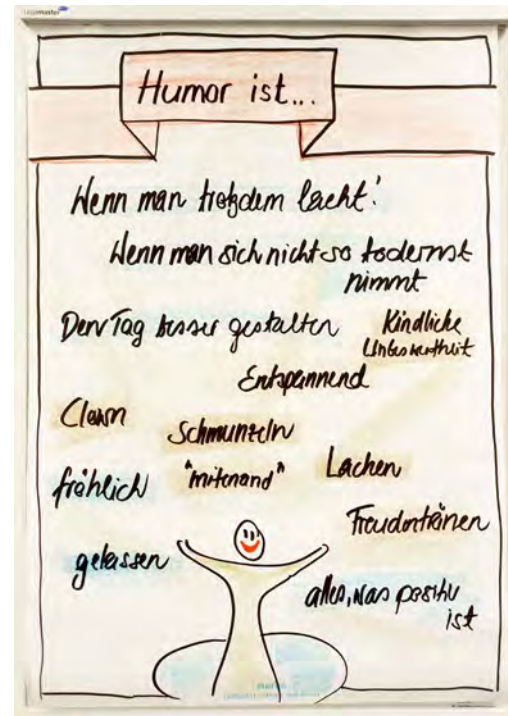 Humor ist...
Wenn man trotzdem lacht!
Wenn man sich nicht so todernst
nimmt
Den Tag besser gestalten
Kindliche
Unbeschwertheit
Entspannend
Clown
Schmunzeln
"mitenand"
Lachen
fröhlich
Freudentränen
gelassen
alles, was positiv
ist